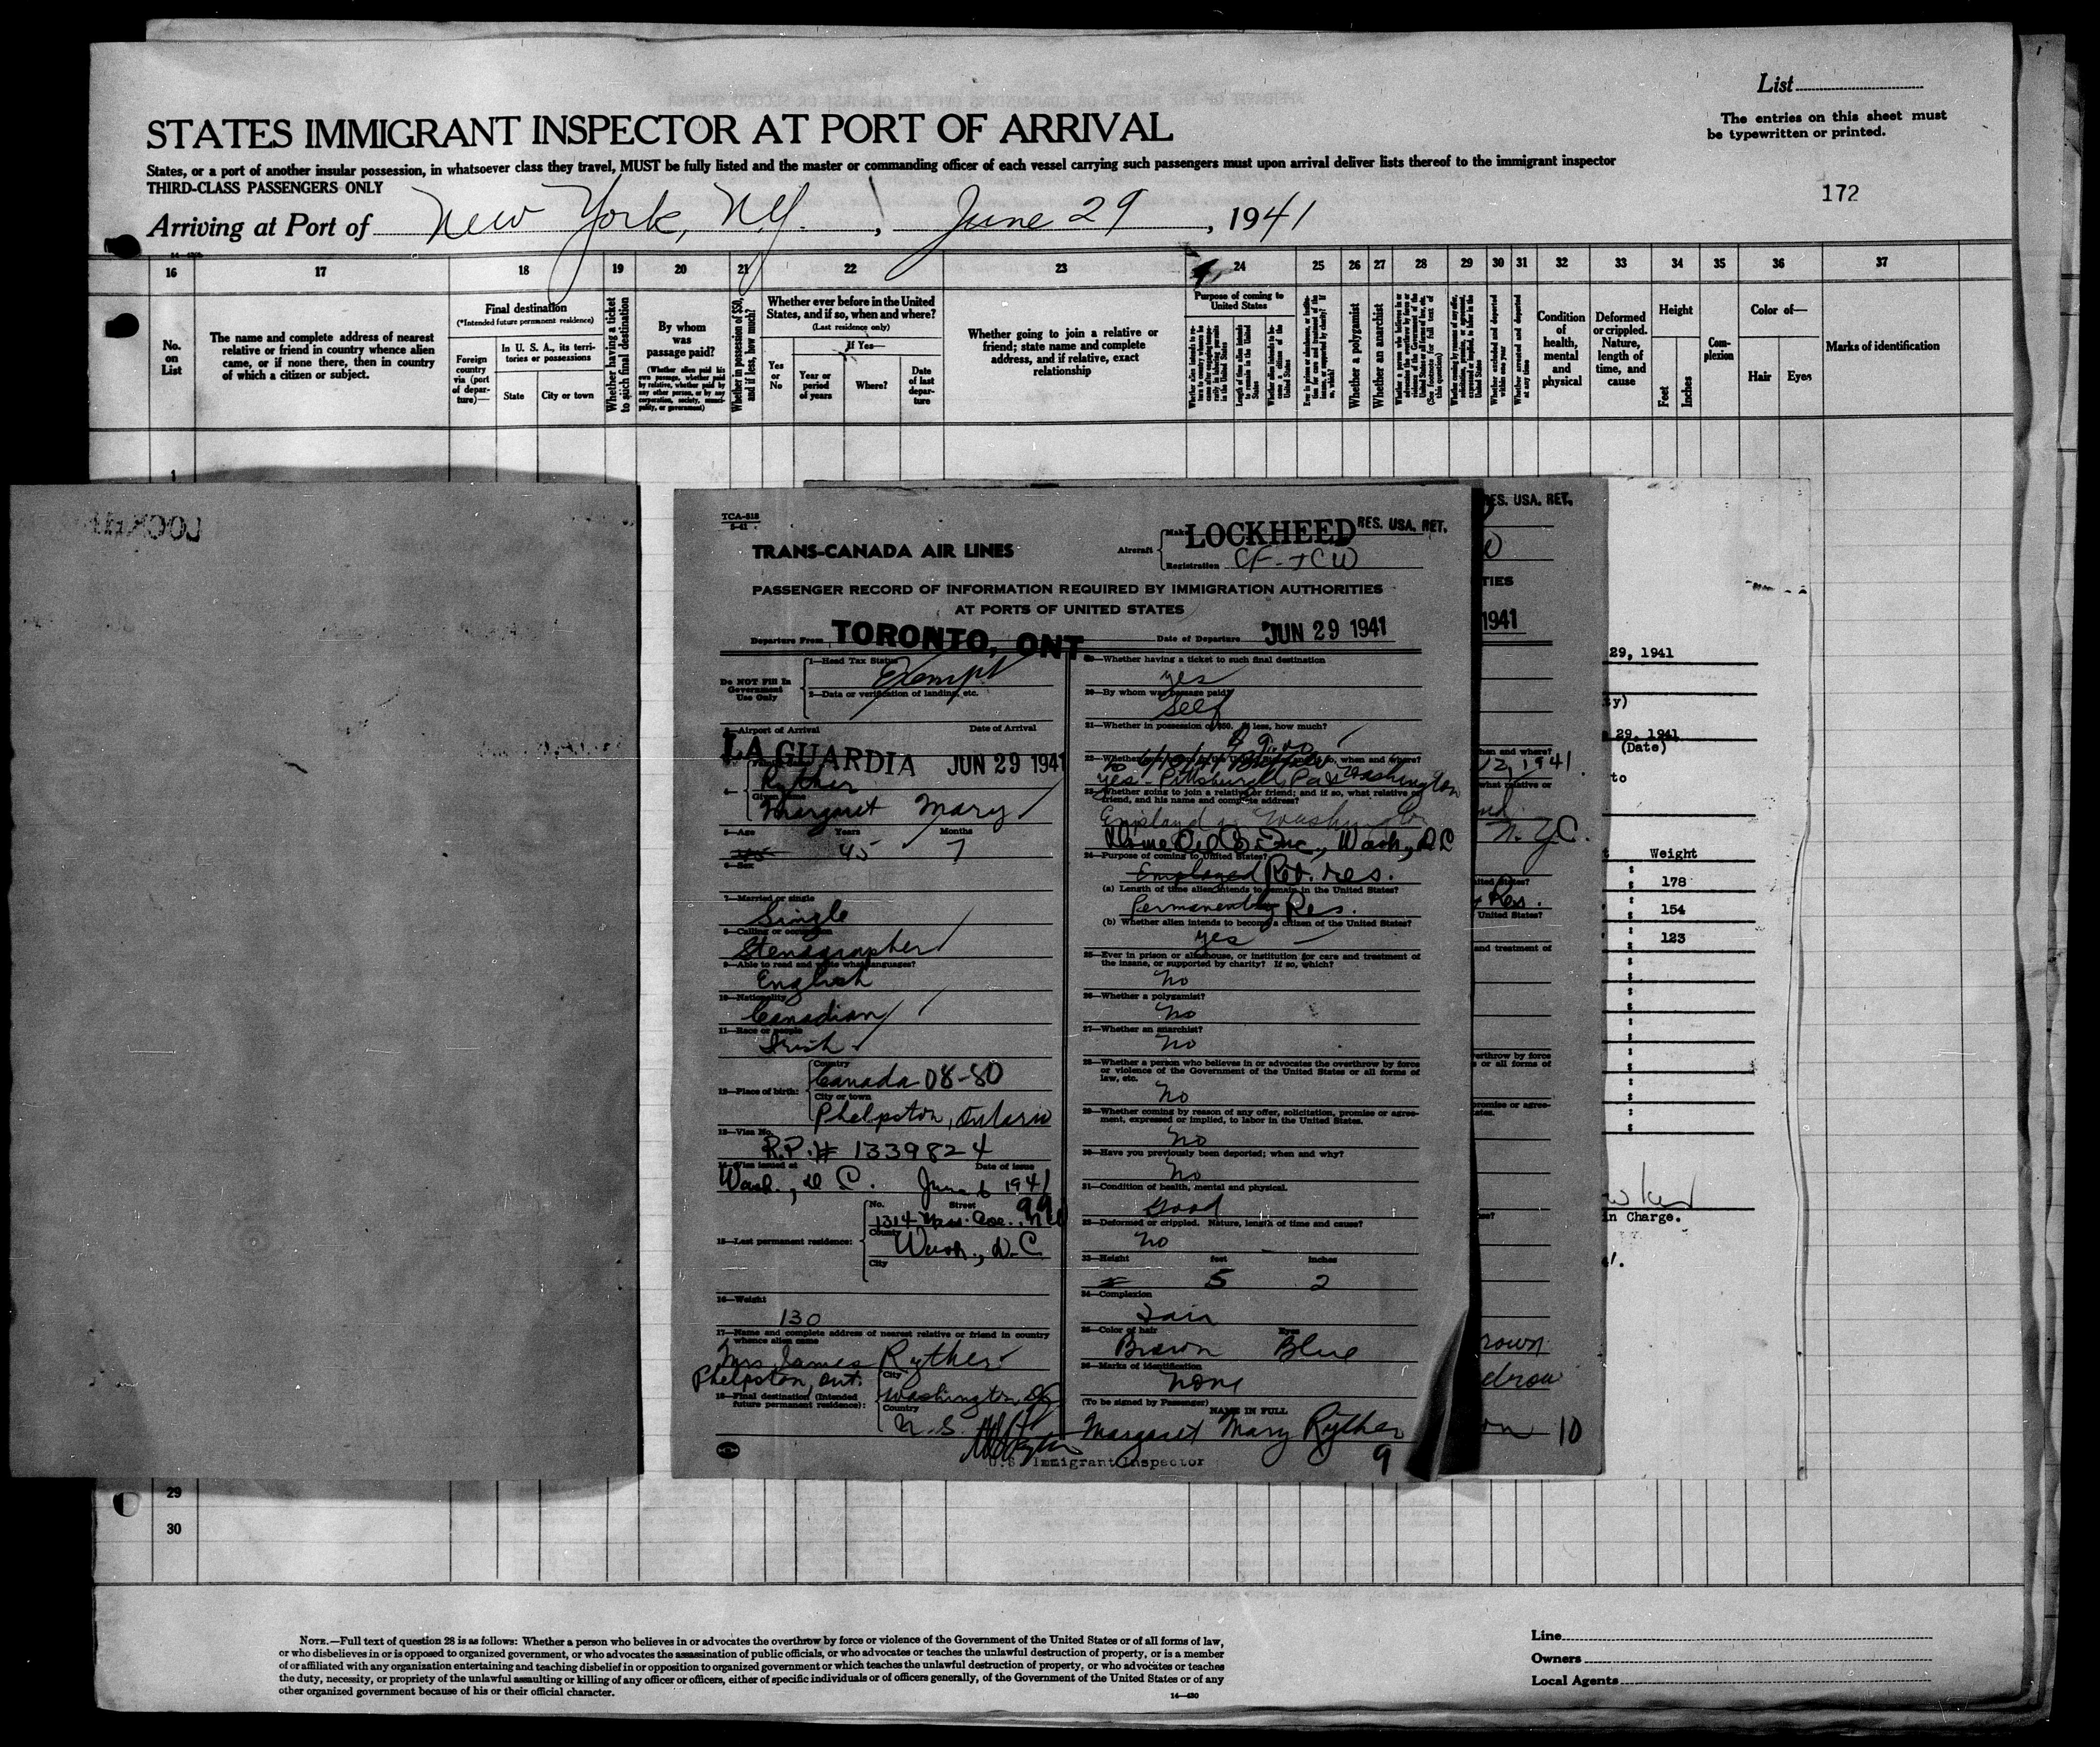 List
The entries on this sheet must
be typewritten or printed.
STATES IMMIGRANT INSPECTOR AT PORT OF ARRIVAL
States, or a port of another insular possession, in whatsoever class they travel, MUST be fully listed and the master or commanding officer of each vessel carrying such passengers must upon arrival deliver lists thereof to the immigrant inspector
THIRD-CLASS PASSENGERS ONLY
172
Arriving at Port of New York, N.Y., June 29, 1941
16 17 18 19 20 21 22 23 24 25 26 27 28 29 30 31 32 33 34 35 36 37
No.
on
List
The name and complete address of nearest
relative or friend in country whence alien
came, or if none there, then in country
of which a citizen or subject.
Final destination
(*Intended future permanent residence)
Foreign
country
via (port
of depar-
ture)—
In U. S. A., its terri-
tories or possessions
State
City or town
Whether having a ticket
to such final destination
By whom
was
passage paid?
(Whether alien paid his
own passage, whether paid
by relative, whether paid by
any other person, or by any
corporation, society, munici-
pality, or government)
Whether in possession of $50,
and if less, how much?
Whether ever before in the United
States, and if so, when and where?
(Last residence only)
Yes
or
No
If Yes—
Year or
period
of years
Where?
Date
of last
depar-
ture
Whether going to join a relative or
friend; state name and complete
address, and if relative, exact
relationship
Purpose of coming to
United States
Whether a polygamist
Whether an anarchist
Condition
of
health,
mental
and
physical
Deformed
or crippled.
Nature,
length of
time, and
cause
Height
Feet
Inches
Com-
plexion
Color of—
Hair
Eyes
Marks of identification
1
TCA-518
5-41
TRANS-CANADA AIR LINES
Aircraft
Make LOCKHEED RES. USA. RET.
Registration CF-TCW
PASSENGER RECORD OF INFORMATION REQUIRED BY IMMIGRATION AUTHORITIES
AT PORTS OF UNITED STATES
Departure From TORONTO, ONT. Date of Departure JUN 29 1941
Do NOT Fill In
Government
Use Only
1—Head Tax Status
Exempt
2—Data or verification of landing, etc.
3—Airport of Arrival Date of Arrival
LA GUARDIA JUN 29 1941
Ryther
Given Name
Margaret Mary
5—Age Years Months
45 45 7
6—Sex
7—Married or single
Single
8—Calling or occupation
Stenographer
9—Able to read and write what languages?
English
10—Nationality
Canadian
11—Race or people
Irish
12—Place of birth:
Country
Canada 08-80
City or town
Phelpston, Ontario
13—Visa No.
R.P.# 1339824
14—Visa issued at Date of issue
Wash., D C. June 6 1941
99
15—Last permanent residence:
No. Street
1314 Mass. Ave. N.W
County
Wash., D.C
City
16—Weight
130
17—Name and complete address of nearest relative or friend in country
whence alien came
Mrs James Ryther
Phelpston, Ont.
18—Final destination (Intended
future permanent residence):
City
Washington, DC
Country
U.S.
U.S. Immigrant Inspector
19—Whether having a ticket to such final destination
yes
20—By whom was passage paid?
Self
21—Whether in possession of $50, if less, how much?
22—Whether so, when and where?
yes - Pittsburgh, Pa & Washington
23—Whether going to join a relative or friend; and if so, what relative or
friend, and his name and complete address?
Washington
Inc., Wash., D C
24—Purpose of coming to United States?
Employed Ret. res.
(a) Length of time alien intends to remain in the United States?
Permanently Res.
(b) Whether alien intends to become a citizen of the United States?
yes
25—Ever in prison or almshouse, or institution for care and treatment of
the insane, or supported by charity? If so, which?
No
26—Whether a polygamist?
No
27—Whether an anarchist?
No
28—Whether a person who believes in or advocates the overthrow by force
or violence of the Government of the United States or all forms of
law, etc.
No
29—Whether coming by reason of any offer, solicitation, promise or agree-
ment, expressed or implied, to labor in the United States.
No
30—Have you previously been deported; when and why?
No
31—Condition of health, mental and physical.
Good
32—Deformed or crippled. Nature, length of time and cause?
No
33—Height feet inches
5 2
34—Complexion
Fair
35—Color of hair Eyes
Brown Blue
36—Marks of identification
None
(To be signed by Passenger)
NAME IN FULL
Margaret Mary Ryther
9
RES. USA. RET.
TIES
1941
hen and where?
12, 1941.
what relative or
N.Y.C.
nited States?
Res.
United States?
and treatment of
erthrow by force
s or all forms of
promise or agree-
rown
10
29, 1941
ty)
29, 1941
(Date)
to
Weight
178
154
123
in Charge.
29
30
NOTE.—Full text of question 28 is as follows: Whether a person who believes in or advocates the overthrow by force or violence of the Government of the United States or of all forms of law,
or who disbelieves in or is opposed to organized government, or who advocates the assassination of public officials, or who advocates or teaches the unlawful destruction of property, or is a member
of or affiliated with any organization entertaining and teaching disbelief in or opposition to organized government or which teaches the unlawful destruction of property, or who advocates or teaches
the duty, necessity, or propriety of the unlawful assaulting or killing of any officer or officers, either of specific individuals or of officers generally, of the Government of the United States or of any
other organized government because of his or their official character.
14—430
Line
Owners
Local Agents